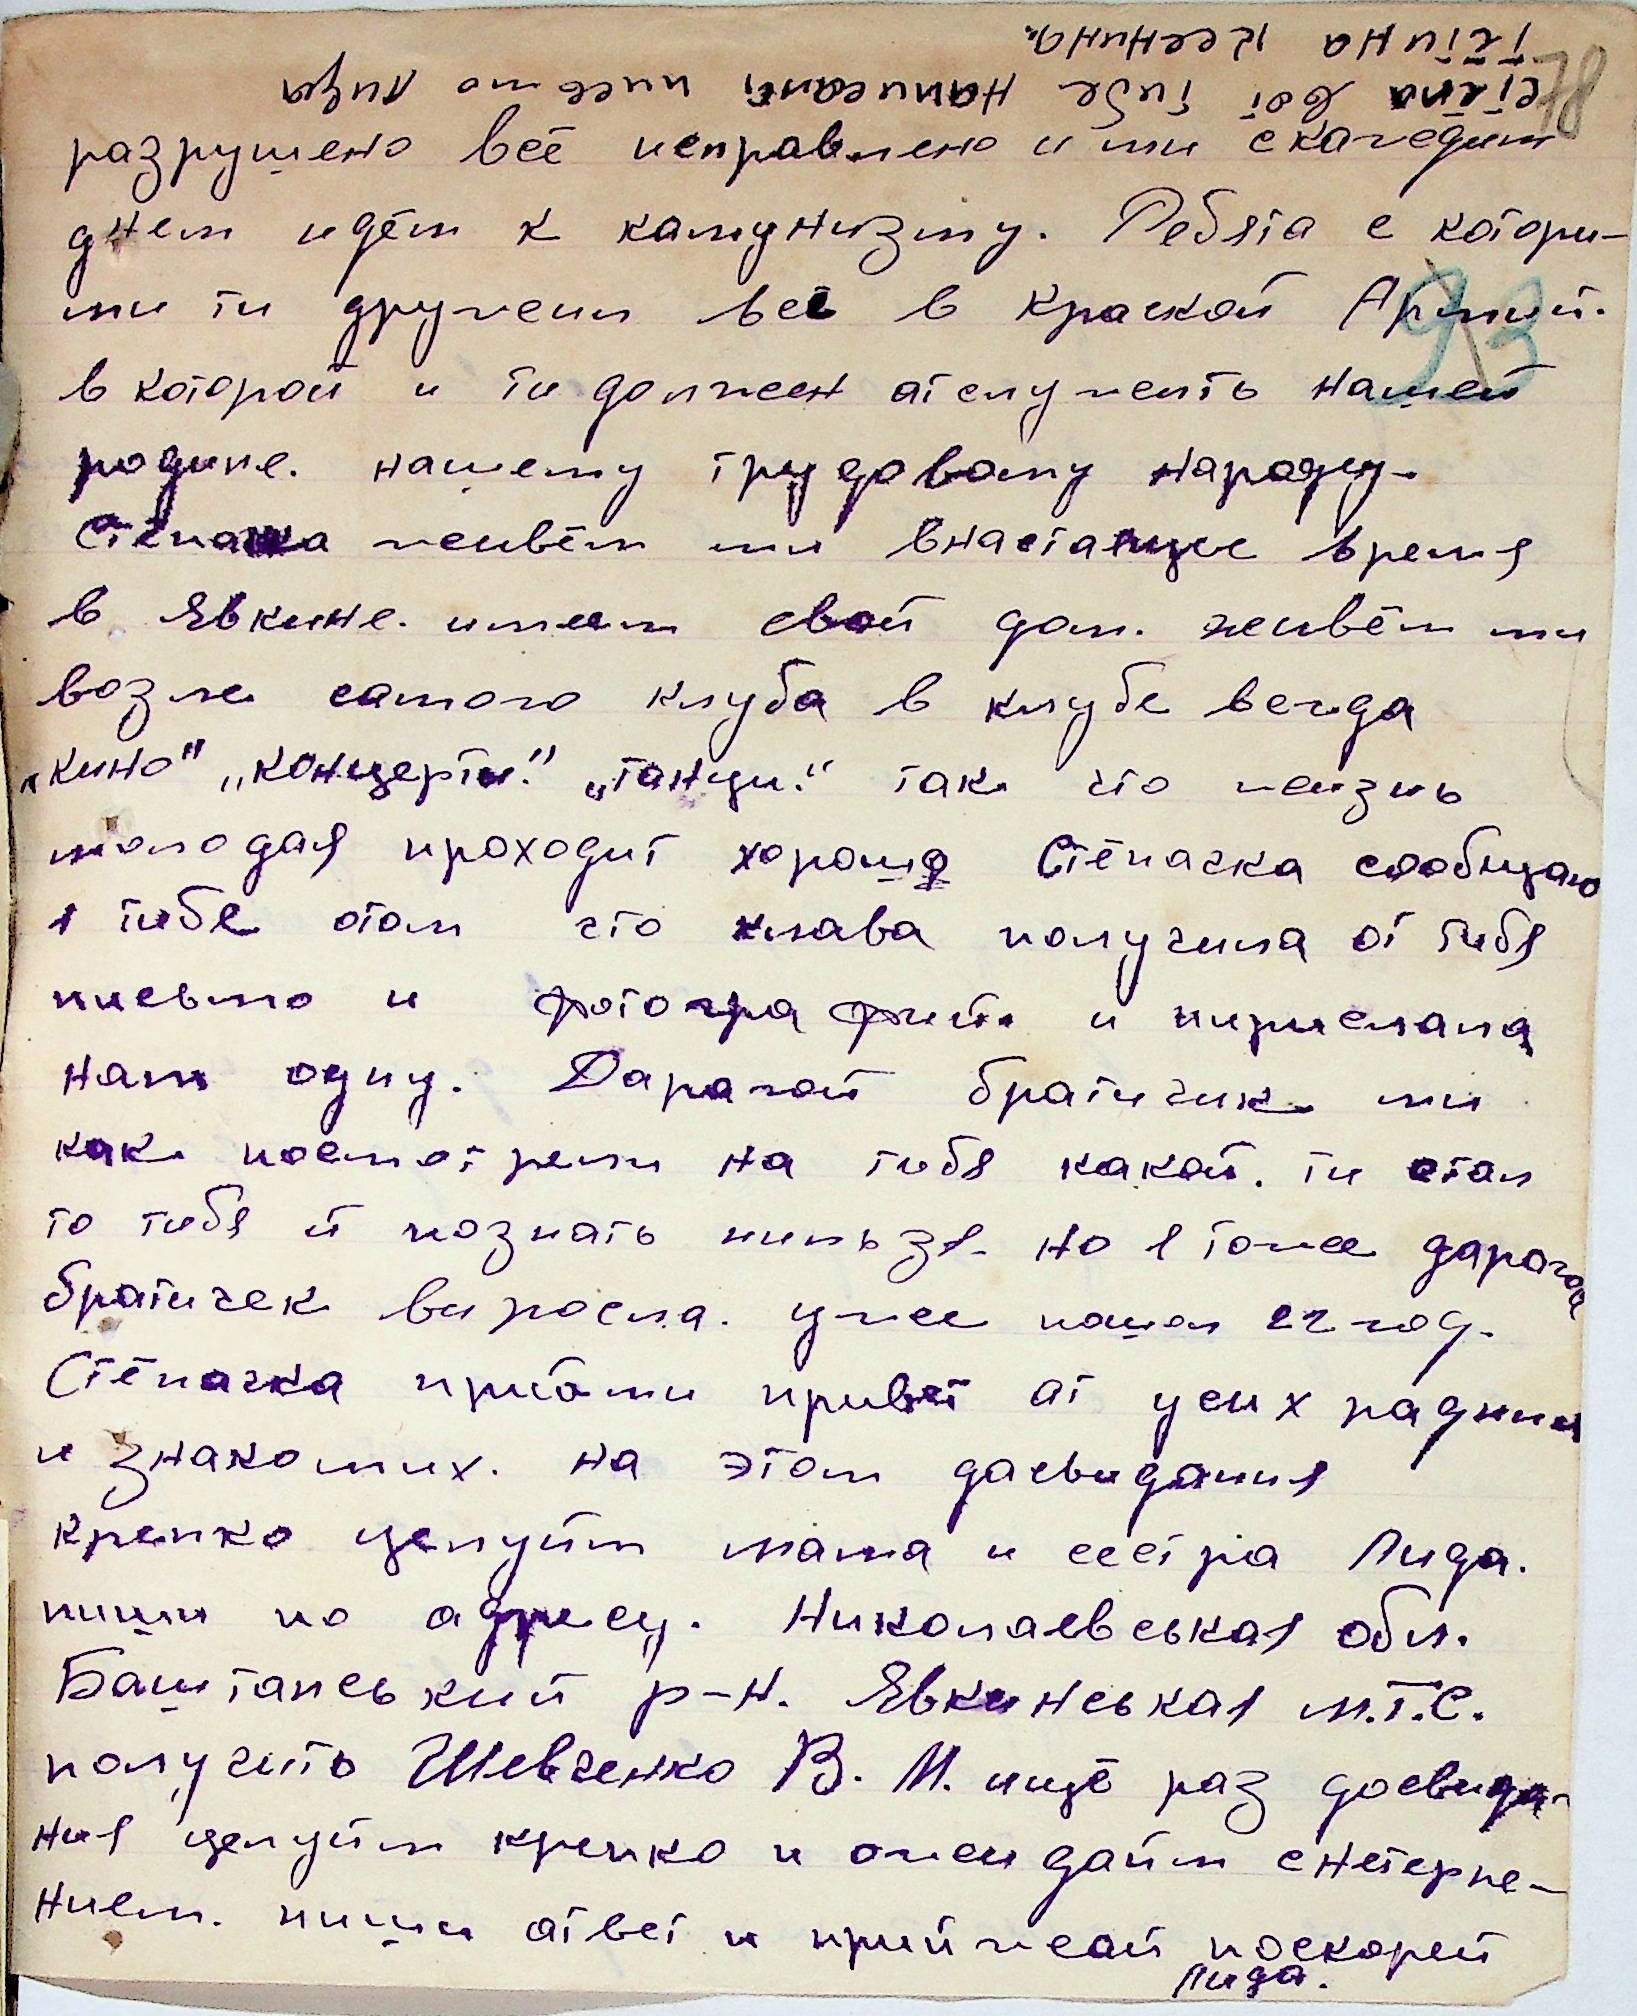 Стёпа вот тибе написать письмо Лида
тётина
разрушено всё исправлено и ми скаждим
днем идём к камунизму. Ребята с котори-
ми ти дружеш всё в Краской Армий.
в которой и ти должен атслужеть нашей
родине. нашему трудовому народу.
Стёпачка жевём ми внастаяще время
в Явкине. имеем свой дом. жевём ми
возле самого клуба в клубе всегда
„кино" „концерти." „танци." так что жеизнь
молодая проходит хорошо Стёпачка сообщаю
я тибе отом что клава получила от тибя
письмо и фотографий иприслала
нам одну. Дарагой братичик ми
как посмотрели на тибя какой. ти стал
то тибя й познать нильзя. но я тоже дарогой
братичек виросла. уже пошол 22 год.
Стёпачка прийми привет от усих радних
и знакомих. на этом досвидания
крепко целуйм мама и сестра Лида.
пиши по адресу. Николаевськая обл.
Баштанський р-н. Явкинськая М.Т.С.
получить Шевченко В. М. ищё раз досвида-
ния целуйм крепко и ожеидайм снетерпе-
нием. пиши атвет и прийжеай поскорей
Лида.